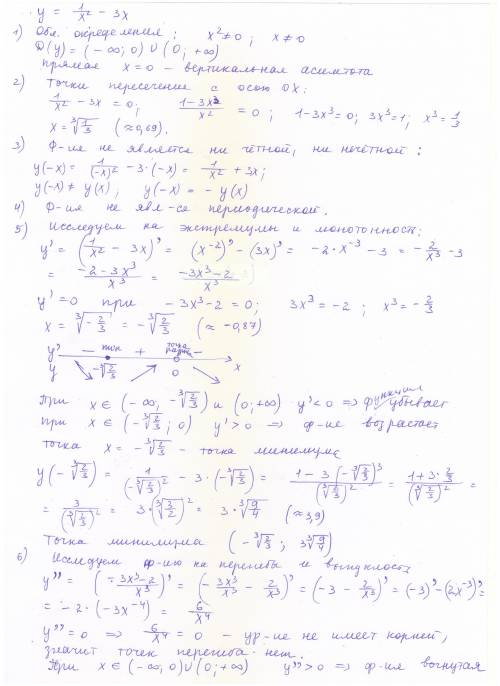 y = 1/x² − 3x
1) Обл. определения: x² ≠ 0; x ≠ 0
D(y) = (−∞; 0) ∪ (0; +∞)
прямая x = 0 – вертикальная асимптота
2) Точки пересечение с осью OX:
1/x² − 3x = 0; (1−3x³)/x² = 0; 1−3x³ = 0; 3x³ = 1; x³ = 1/3
x = ∛(1/3) (≈ 0,69).
3) Ф-ия не является ни чётной, ни нечётной:
y(−x) = 1/(−x)² − 3·(−x) = 1/x² + 3x;
y(−x) ≠ y(x), y(−x) = − y(x)
4) Ф-ия не явл-ся периодической.
5) Исследуем на экстремумы и монотонность:
y' = (1/x² − 3x)' = (x⁻²)' − (3x)' = −2·x⁻³ − 3 = −2/x³ − 3
= (−2−3x³)/x³ = (−3x³−2)/x³
y' = 0 при −3x³−2 = 0; 3x³ = −2; x³ = −2/3
x = ∛(−2/3) = −∛(2/3) (≈ −0,87)
y' − мин + точка разр. − x
y −∛(2/3) 0
При x ∈ (−∞, −∛(2/3)) и (0; +∞) y' < 0 ⇒ функция убывает
при x ∈ (−∛(2/3); 0) y' > 0 ⇒ ф-ие возрастает
точка x = −∛(2/3) – точка минимума
y(−∛(2/3)) = 1/(−∛(2/3))² − 3·(−∛(2/3)) = (1−3(−∛(2/3))³)/(∛(2/3))² = (1+3·2/3)/(∛(2/3))² =
= 3/(∛(2/3))² = 3·(∛(3/2))² = 3·∛(9/4) (≈ 3,9)
Точка минимума (−∛(2/3); 3∛(9/4))
6) Исследуем ф-ию на перегибы и выпуклость
y'' = ((−3x³−2)/x³)' = (−3x³/x³ − 2/x³)' = (−3 − 2/x³)' = (−3)' − (2x⁻³)' =
= −2·(−3x⁻⁴) = 6/x⁴
y'' = 0 ⇒ 6/x⁴ = 0 – ур-ие не имеет корней,
значит точек перегиба нет.
При x ∈ (−∞, 0) ∪ (0; +∞) y'' > 0 ⇒ ф-ия вогнутая